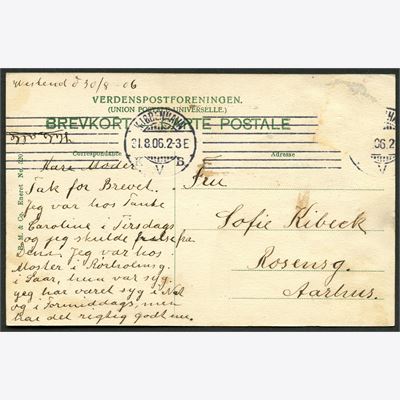 d 30/8 - 06
VERDENSPOSTFORENINGEN.
(UNION POSTALE UNIVERSELLE.)
BREVKORT - CARTE POSTALE
KJØBENHAVN
31.8.06.2-3E
V B
06.2
Correspondance
Adresse
Eneret No.
Kære Moder
Tak for Brevet.
Jeg var hos Tante
Caroline i Tirsdags
og jeg skulde hilse fra
Dem. Jeg var hos
Moster i
i Gaar, hun var syg.
jeg har været syg i Nat
og i Formiddags, men
har det rigtig godt nu.
Fru
Sofie Kibeck
Rosensg.
Aarhus.